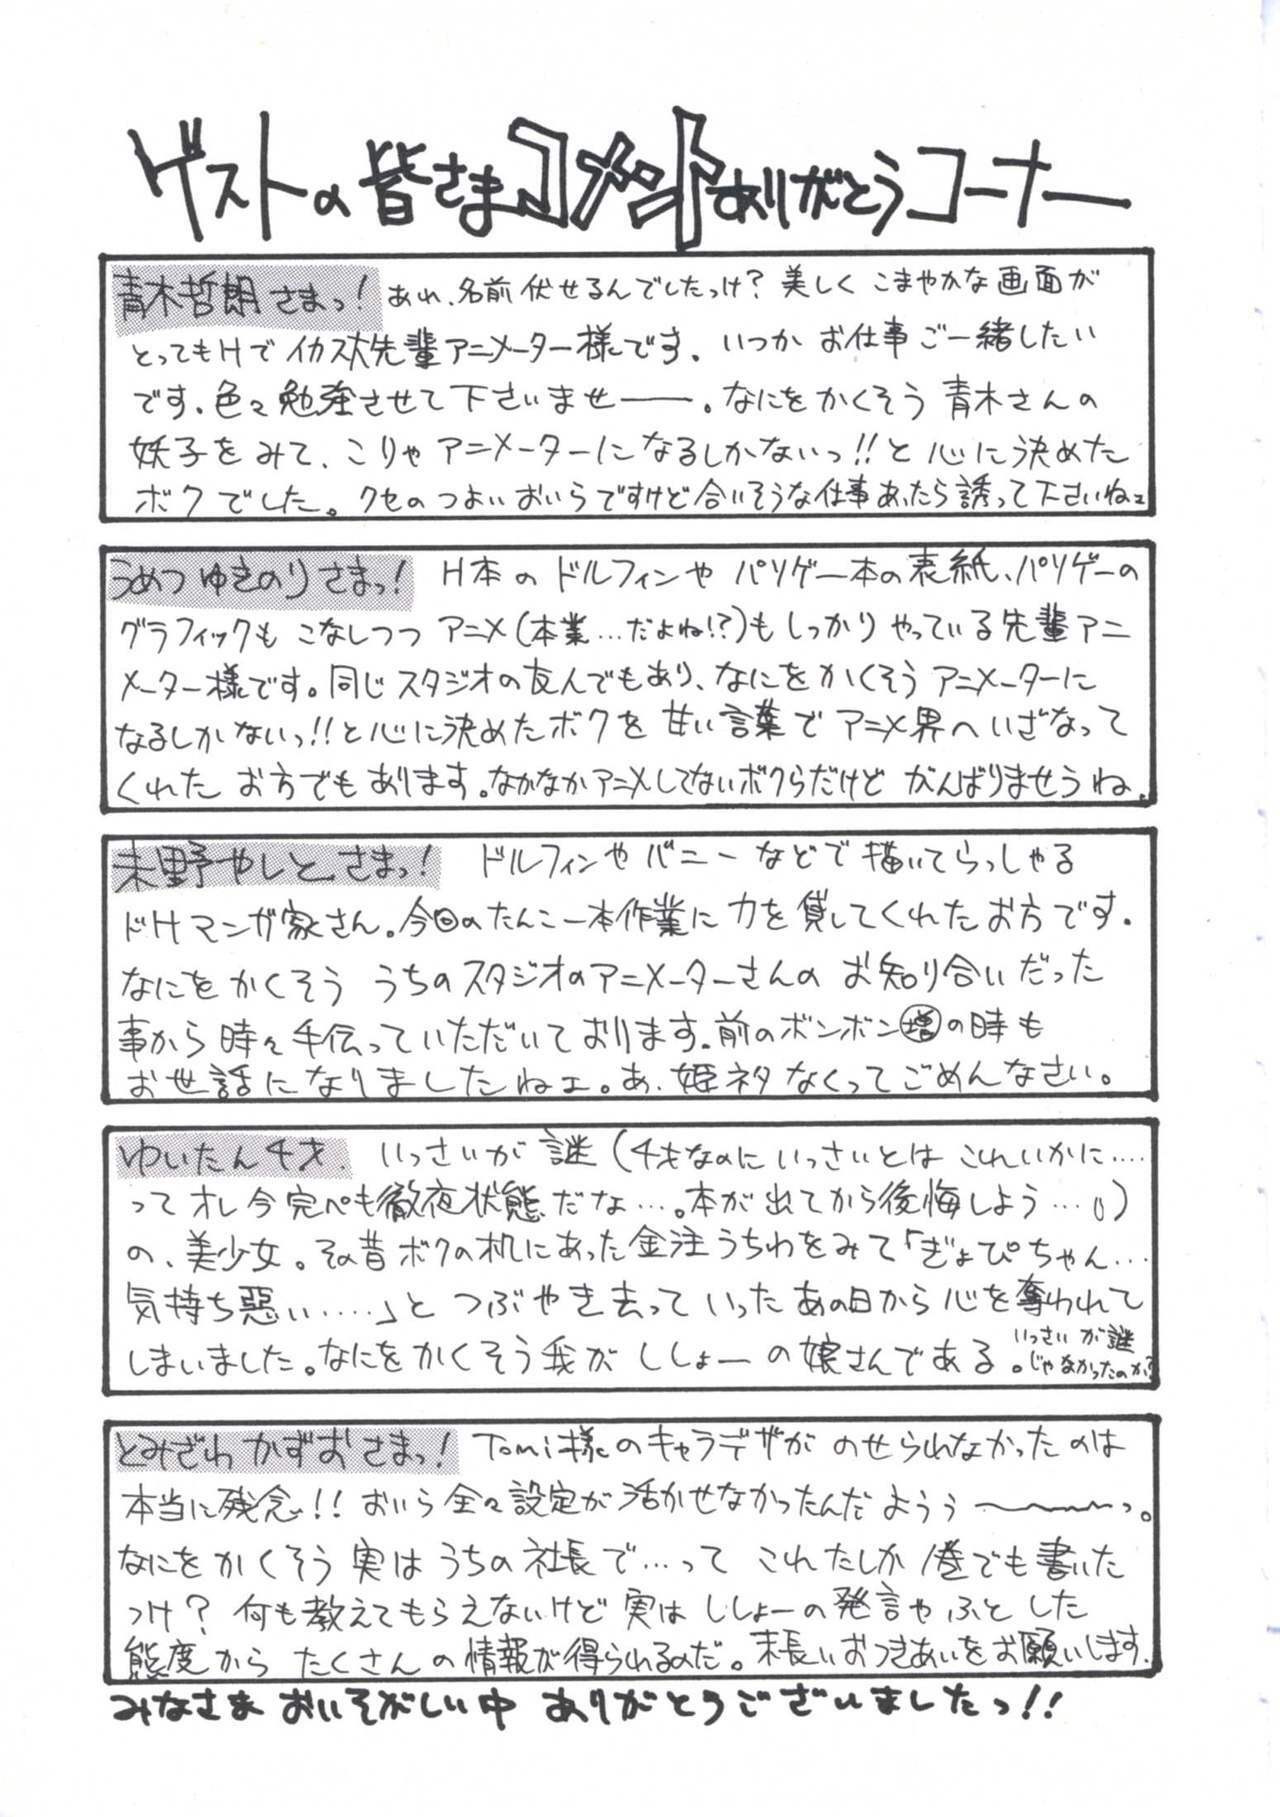 ゲストの皆さまコメントありがとうコーナー
青木哲朗さまっ! あれ、名前伏せるんでしたっけ?美しくこまやかな画面が
とってもHでイカス大先輩アニメーター様です。いつかお仕事ご一緒したい
です。色々勉強させて下さいませ――。なにをかくそう青木さんの
妖子をみて、こりゃアニメーターになるしかないっ!!と心に決めた
ボクでした。クセのつよいおいらですけど合いそうな仕事あったら誘って下さいねェ
うめつゆきのりさまっ! H本のドルフィンやパソゲー本の表紙、パソゲーの
グラフィックもこなしつつアニメ(本業…だよね!?)もしっかりやっている先輩アニ
メーター様です。同じスタジオの友人でもあり、なにをかくそうアニメーターに
なるしかないっ!!と心に決めたボクを甘い言葉でアニメ界へいざなって
くれたお方でもあります。なかなかアニメしてないボクらだけどがんばりませうね。
未野やしとさまっ! ドルフィンやバニーなどで描いてらっしゃる
ドHマンガ家さん。今回のたんこー本作業に力を貸してくれたお方です。
なにをかくそううちのスタジオのアニメーターさんのお知り合いだった
事から時々手伝っていただいております。前のボンボン増の時も
お世話になりましたねェ。あ、姫ネタなくってごめんなさい。
ゆいたん4才. いっさいが謎(4才なのにいっさいとはこれいかに‥‥
ってオレ今完ペも徹夜状態だな…。本が出てから後悔しよう…)
の、美少女。その昔ボクの机にあった金注うちわをみて「ぎょぴちゃん…
気持ち悪い……」とつぶやき去っていったあの日から心を奪われて
しまいました。なにをかくそう我がししょーの娘さんである。いっさいが謎
じゃなかったのか?
とみざわかずおさまっ! Tomi様のキャラデザがのせられなかったのは
本当に残念!!おいら全々設定が活かせなかったんだようぅ〜〜〜っ。
なにをかくそう実はうちの社長で…ってこれたしか1巻でも書いた
っけ?何も教えてもらえないけど実はししょーの発言やふとした
態度からたくさんの情報が得られるのだ。末長いおつきあいをお願いします.
みなさまおいそがしい中ありがとうございましたっ!!